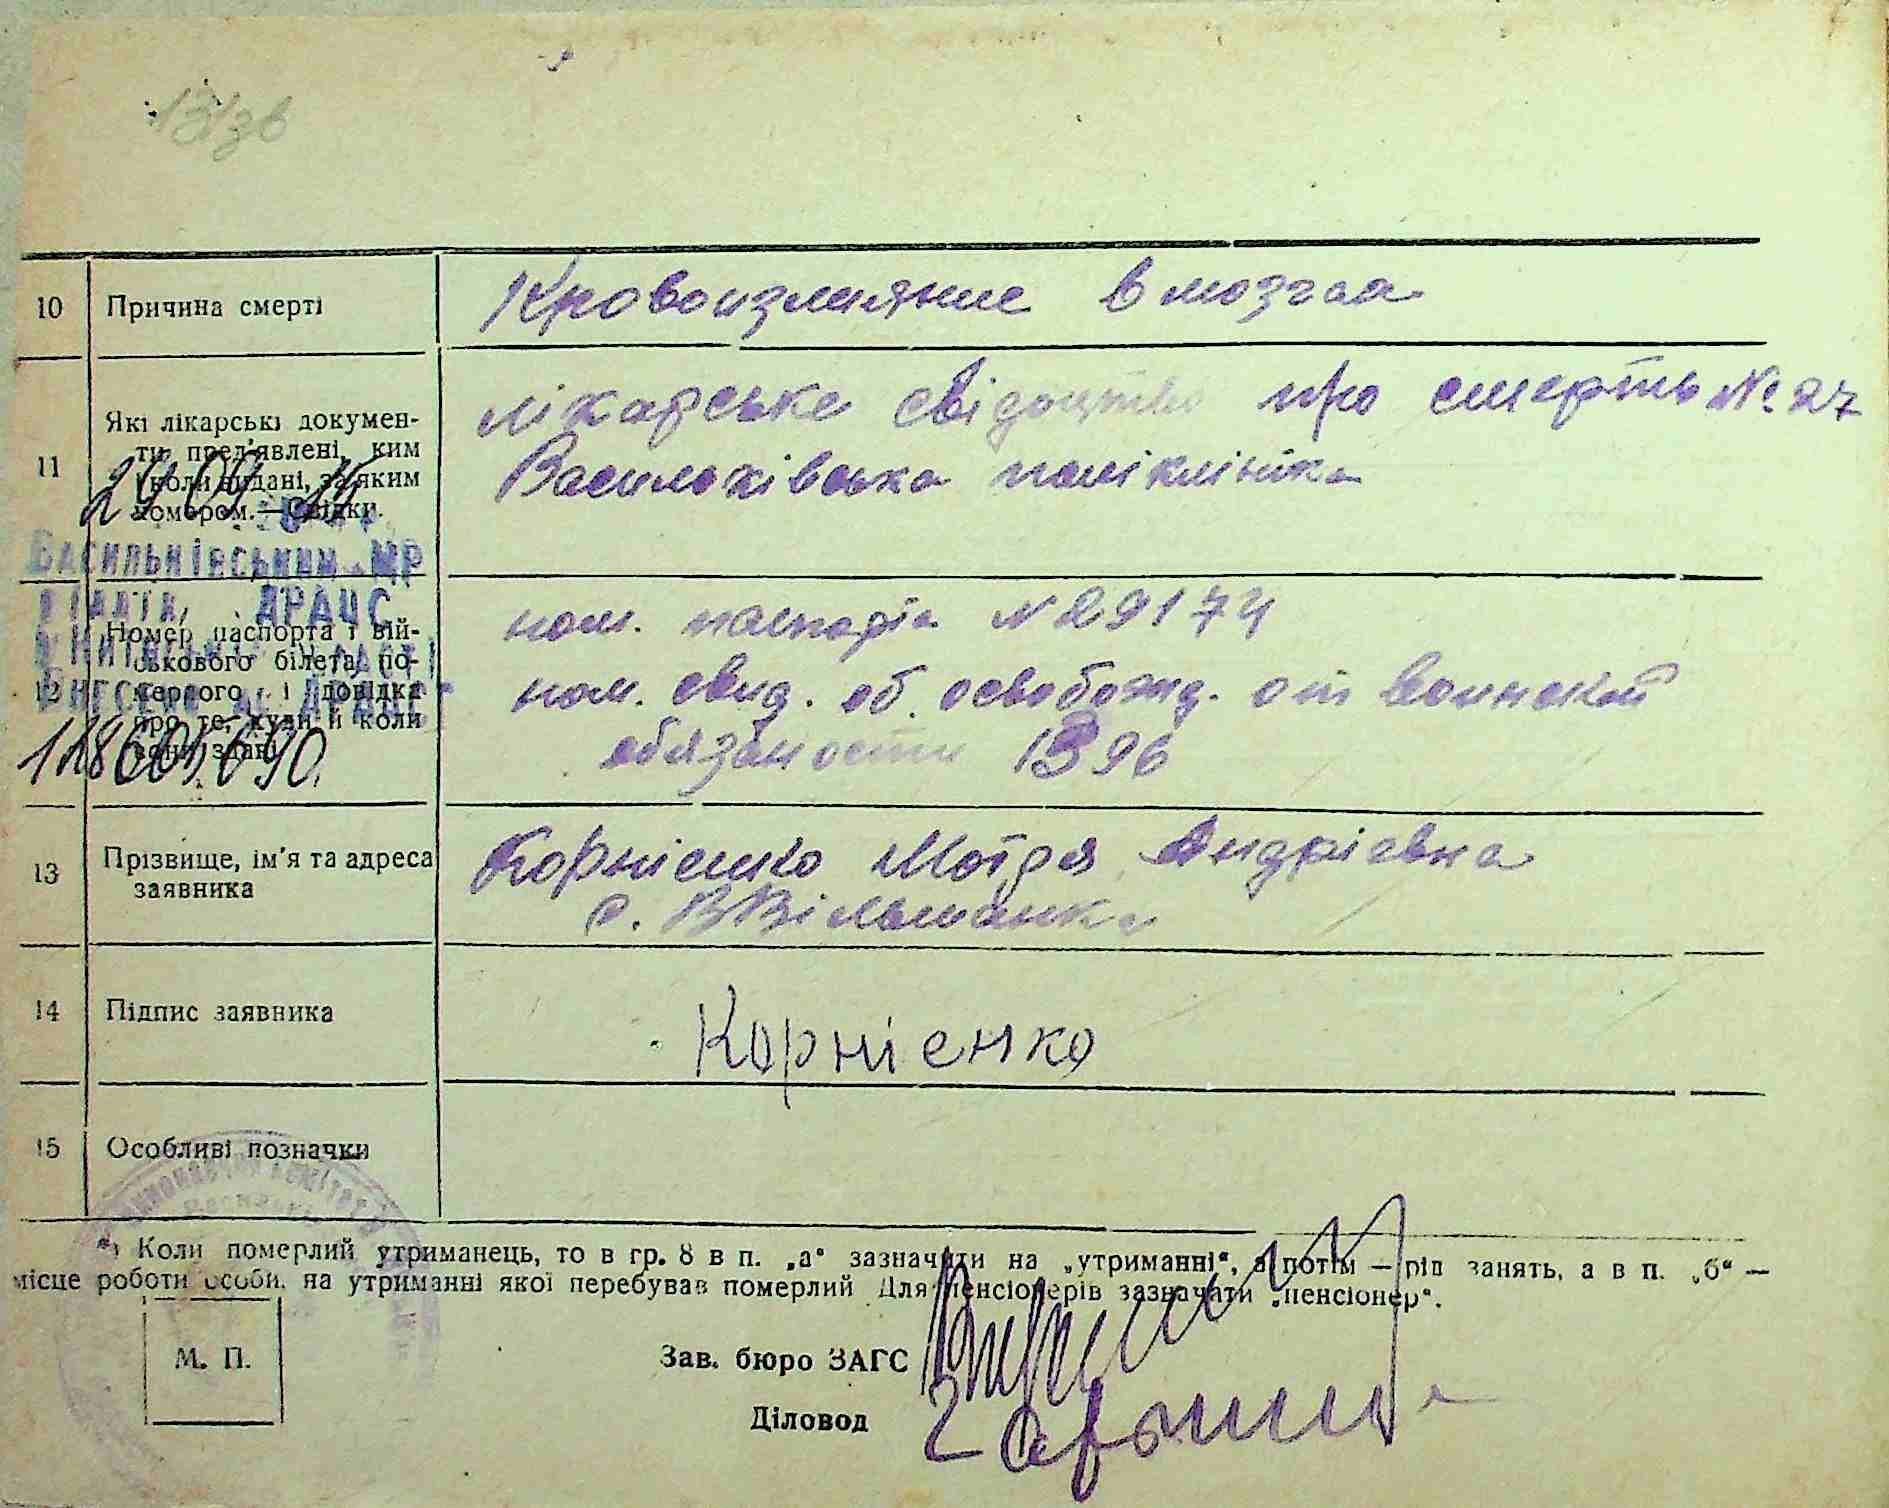 10 Причина смерті
Кровоизлияние в мозгаа
11 Які лікарські докумен-
ти пред'явлені, ким
і коли видані, за яким
номером.—Свідки.
лікарське свідоцтво про смерть № 27
Василоківська поліклініка
29 09 15
Васильківським МР
ДРАЦС
12 Номер паспорта і вій-
ськового білета по-
мерлого і довідка
про те, куди й коли
вони здані
ном. паспорта N 29174
ном. свид. об освобожд. от воинской
обязаности 1396
118605690.
13 Прізвище, ім'я та адреса
заявника
Корнієнко Мотря Андріевна
с. ВВільшанка
14 Підпис заявника
Корнієнко
15 Особливі позначки
*) Коли померлий утриманець, то в гр. 8 в п. „а“ зазначати на „утриманні“, а потім — рід занять, а в п. „б“ —
місце роботи особи, на утриманні якої перебував померлий Для пенсіонерів зазначати „пенсіонер“.
М. П.
Зав. бюро ЗАГС
Діловод